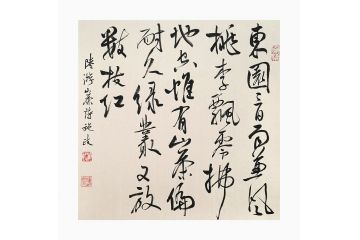 東園三日雨兼風
桃李飄零掃
地空惟有山茶偏
耐久綠叢又放
數枝紅
陸游山茶詩